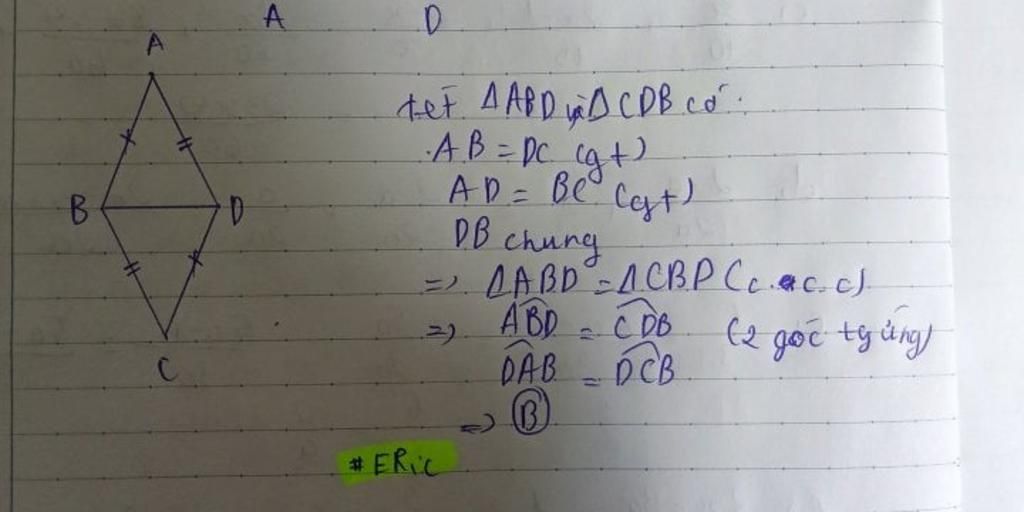 A D
A
B D
C
tet ΔABD và ΔCDB có:
AB = DC (gt)
AD = BC (gt)
DB chung
=> ΔABD = ΔCBD (c.c.c)
=> \widehat{ABD} = \widehat{CDB} (2 góc tg ứng)
\widehat{DAB} = \widehat{DCB}
=> B
#ERic